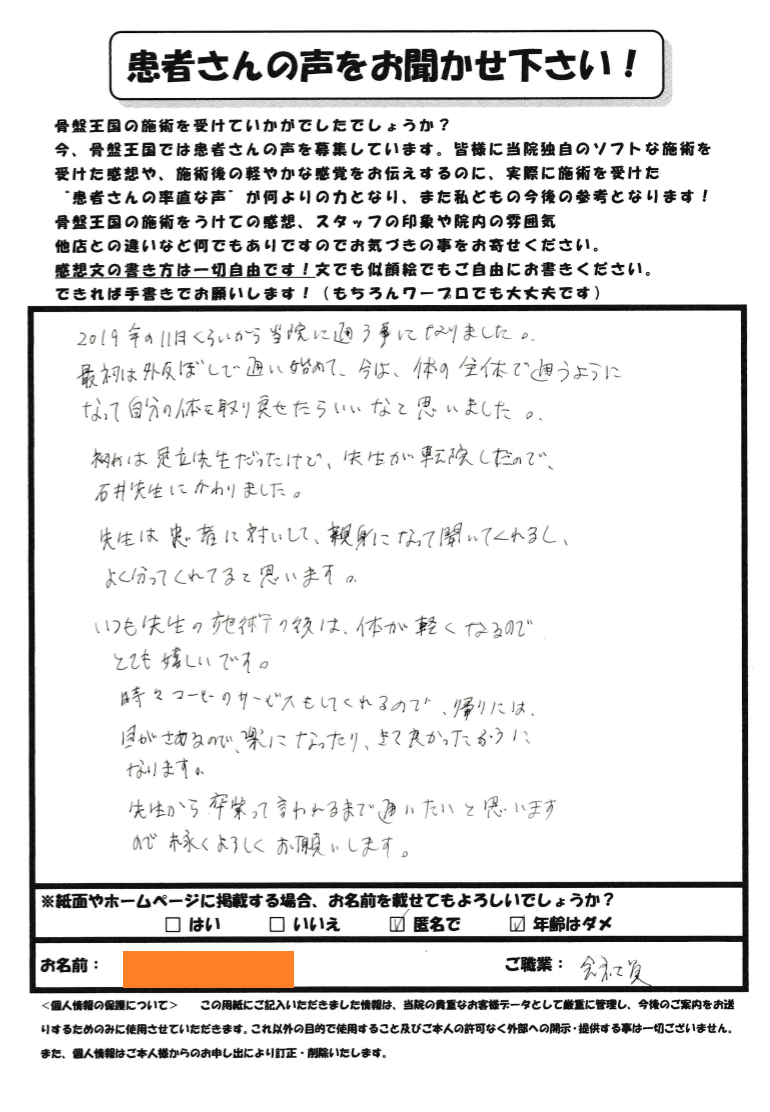 患者さんの声をお聞かせ下さい！
骨盤王国の施術を受けていかがでしたでしょうか？
今、骨盤王国では患者さんの声を募集しています。皆様に当院独自のソフトな施術を
受けた感想や、施術後の軽やかな感覚をお伝えするのに、実際に施術を受けた
“患者さんの率直な声”が何よりの力となり、また私どもの今後の参考となります！
骨盤王国の施術をうけての感想、スタッフの印象や院内の雰囲気
他店との違いなど何でもありですのでお気づきの事をお寄せください。
感想文の書き方は一切自由です！文でも似顔絵でもご自由にお書きください。
できれば手書きでお願いします！（もちろんワープロでも大丈夫です）
2019年の11月くらいから当院に通う事になりました。
最初は外反ぼしで通い始めて、今は、体の全体で通うように
なって自分の体を取り戻せたらいいなと思いました。
初めは足立先生だったけど、先生が転院したので、
石井先生にかわりました。
先生は患者に対いして、親身になって聞いてくれるし、
よく分ってくれてると思います。
いつも先生の施術の後は、体が軽くなるので
とても嬉しいです。
時々コーヒーのサービスもしてくれるので、帰りには、
目がさめるので、楽になったり、来て良かったふうに
なります。
先生から卒業って言われるまで通いたいと思います
ので末永くよろしくお願いします。
※紙面やホームページに掲載する場合、お名前を載せてもよろしいでしょうか？
□ はい □ いいえ ☑ 匿名で ☑ 年齢はダメ
お名前： ご職業： 会社員
＜個人情報の保護について＞ この用紙にご記入いただきました情報は、当院の貴重なお客様データとして厳重に管理し、今後のご案内をお送
りするためのみに使用させていただきます。これ以外の目的で使用すること及びご本人の許可なく外部への開示・提供する事は一切ございません。
また、個人情報はご本人様からのお申し出により訂正・削除いたします。